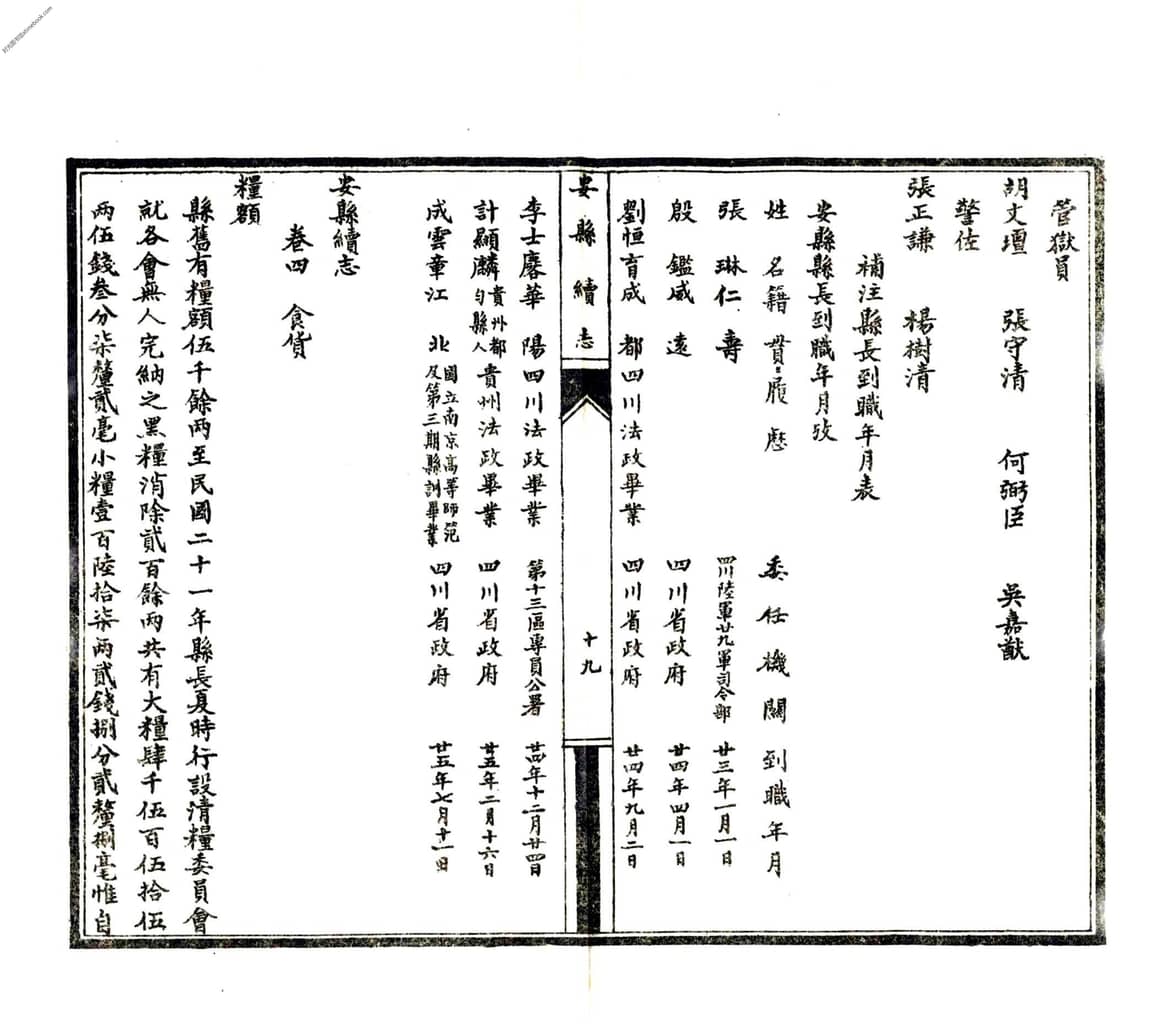 管獄員
胡文壇 張守清 何弼臣 吳嘉猷
警佐
張正謙 楊樹清
補注縣長到職年月表
安縣縣長到職年月攷
姓名 籍貫 履歷 委任機關 到職年月
張琳 仁壽 四川陸軍廿九軍司令部 廿三年一月一日
殷鑑 咸遠 四川省政府 廿四年四月一日
劉恒育 成都 四川法政畢業 四川省政府 廿四年九月二日
安縣續志 十九
李士麐 華陽 四川法政畢業 第十三區專員公署 廿四年十二月廿四日
計顯麟 貴州都勻縣人 貴州法政畢業 四川省政府 廿五年二月十六日
成雲章 江北 國立南京高等師範及第三期縣訓畢業 四川省政府 廿五年七月十一日
安縣續志
卷四 食貨
糧額
縣舊有糧額伍千餘兩至民國二十一年縣長夏時行設清糧委員會
就各會無人完納之黑糧消除貳百餘兩共有大糧肆千伍百伍拾伍
兩伍錢叁分柒釐貳毫小糧壹百陸拾柒兩貳錢捌分貳釐捌毫惟自